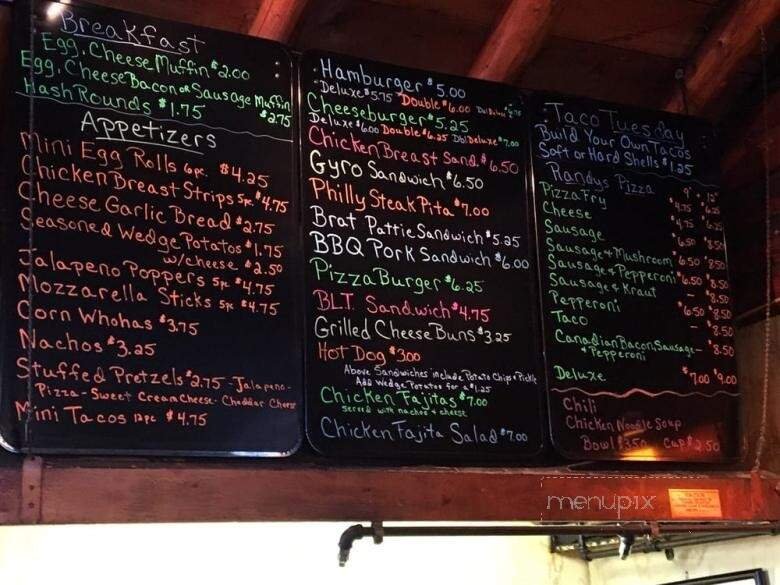 Breakfast
Egg, Cheese Muffin $2.00
Egg, Cheese Bacon or Sausage Muffin
$2.75
Hash Rounds $1.75
Appetizers
Mini Egg Rolls 6pc. $4.25
Chicken Breast Strips 5pc $4.75
Cheese Garlic Bread $2.75
Seasoned Wedge Potatos $1.75
w/cheese $2.50
Jalapeno Poppers 5pc $4.75
Mozzarella Sticks 5pc $4.75
Corn Whohas $3.75
Nachos $3.25
Stuffed Pretzels $2.75 - Jalapeno -
Pizza - Sweet Cream Cheese - Cheddar Cheese
Mini Tacos 12pc $4.75
Hamburger $5.00
Deluxe $5.75 Double $6.00 Dbl Deluxe
Cheeseburger $5.25
Deluxe $6.00 Double $6.25 Dbl Deluxe $7.00
Chicken Breast Sand. $6.50
Gyro Sandwich $6.50
Philly Steak Pita $7.00
Brat Pattie Sandwich $5.25
BBQ Pork Sandwich $6.00
Pizza Burger $6.25
BLT. Sandwich $4.75
Grilled Cheese Buns $3.25
Hot Dog $3.00
Above Sandwiches include Potato Chips & Pickle
Add Wedge Potatos for $1.25
Chicken Fajitas $7.00
served with nachos & cheese
Chicken Fajita Salad $7.00
Taco Tuesday
Build Your Own Tacos
Soft or Hard Shells $1.25
Randys Pizza 9" 12"
Pizza Fry $4.75 $6.25
Cheese $4.75 $6.25
Sausage $6.50 $8.50
Sausage & Mushroom $6.50 $8.50
Sausage & Pepperoni $6.50 $8.50
Sausage & Kraut - $8.50
Pepperoni $6.50 $8.50
Taco - $8.50
Canadian Bacon, Sausage - $8.50
& Pepperoni
Deluxe $7.00 $9.00
Chili
Chicken Noodle Soup
Bowl $3.50 Cup $2.50
menupix